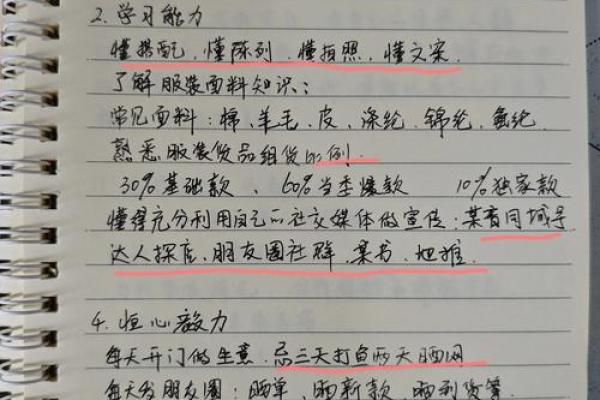 2. 学习能力
懂搭配、懂陈列、懂拍照、懂文案
了解服装面料知识:
常见面料:棉、羊毛、皮、涤纶、锦纶、氨纶
熟悉服装货品组货比例
30%基础款、60%当季爆款 10%独家款
懂得充分利用自己的社交媒体做宣传:某音同城号
达人探店、朋友圈社群、某书、地推
4. 恒心毅力
每天开门做生意、忌三天打鱼两天晒网
每天发朋友圈:晒单、晒新款、晒到货等